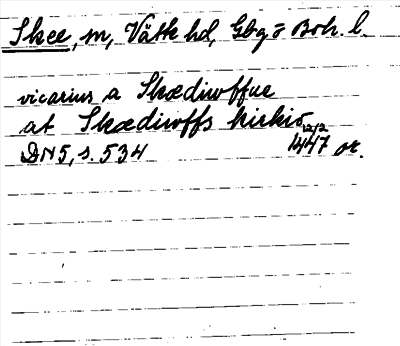 Skee, m, Vätte hd, Gbg o Boh. l.
vicarius a Skædiuoffue
at Skædiuoffs kirkio
12/2
DN 5, s. 534 1447 or.